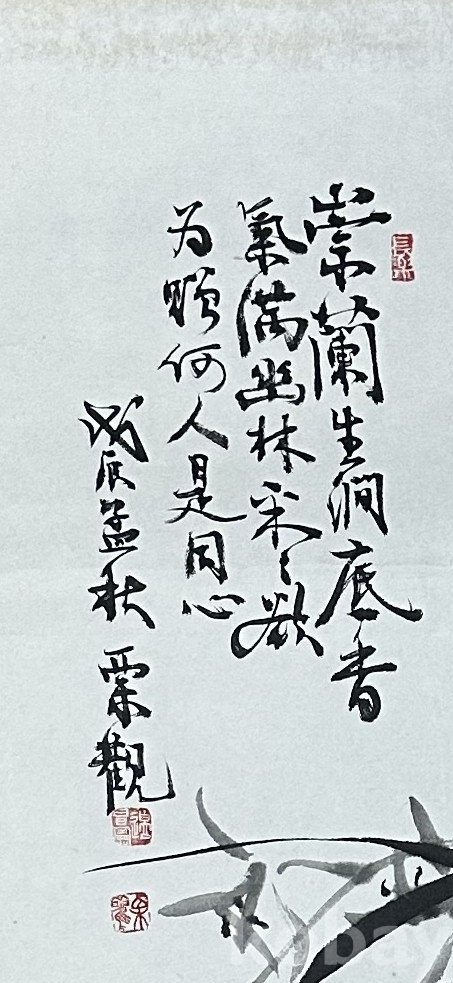 崇蘭生澗底香
氣滿幽林采々欲
为贈何人是同心
戊辰孟秋 栗觀
kobay